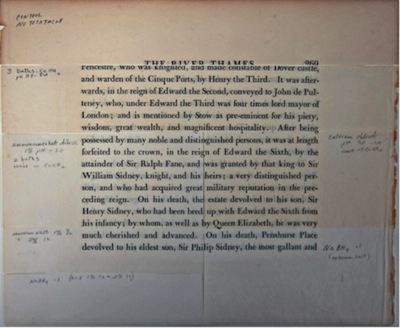 CONTROL
NO TREATMENT
THE RIVER THAMES 269
Pencestre, who was knighted, and made constable of Dover castle,
and warden of the Cinque Ports, by Henry the Third. It was after-
wards, in the reign of Edward the Second, conveyed to John de Pul-
teney, who, under Edward the Third was four times lord mayor of
London; and is mentioned by Stow as pre-eminent for his piety,
wisdom, great wealth, and magnificent hospitality. After being
possessed by many noble and distinguished persons, it was at length
forfeited to the crown, in the reign of Edward the Sixth, by the
attainder of Sir Ralph Fane, and was granted by that king to Sir
William Sidney, knight, and his heirs; a very distinguished per-
son, and who had acquired great military reputation in the pre-
ceding reign. On his death, the estate devolved to his son, Sir
Henry Sidney, who had been bred up with Edward the Sixth from
his infancy; by whom, as well as by Queen Elizabeth, he was very
much cherished and advanced. On his death, Penshurst Place
devolved to his eldest son, Sir Philip Sidney, the most gallant and